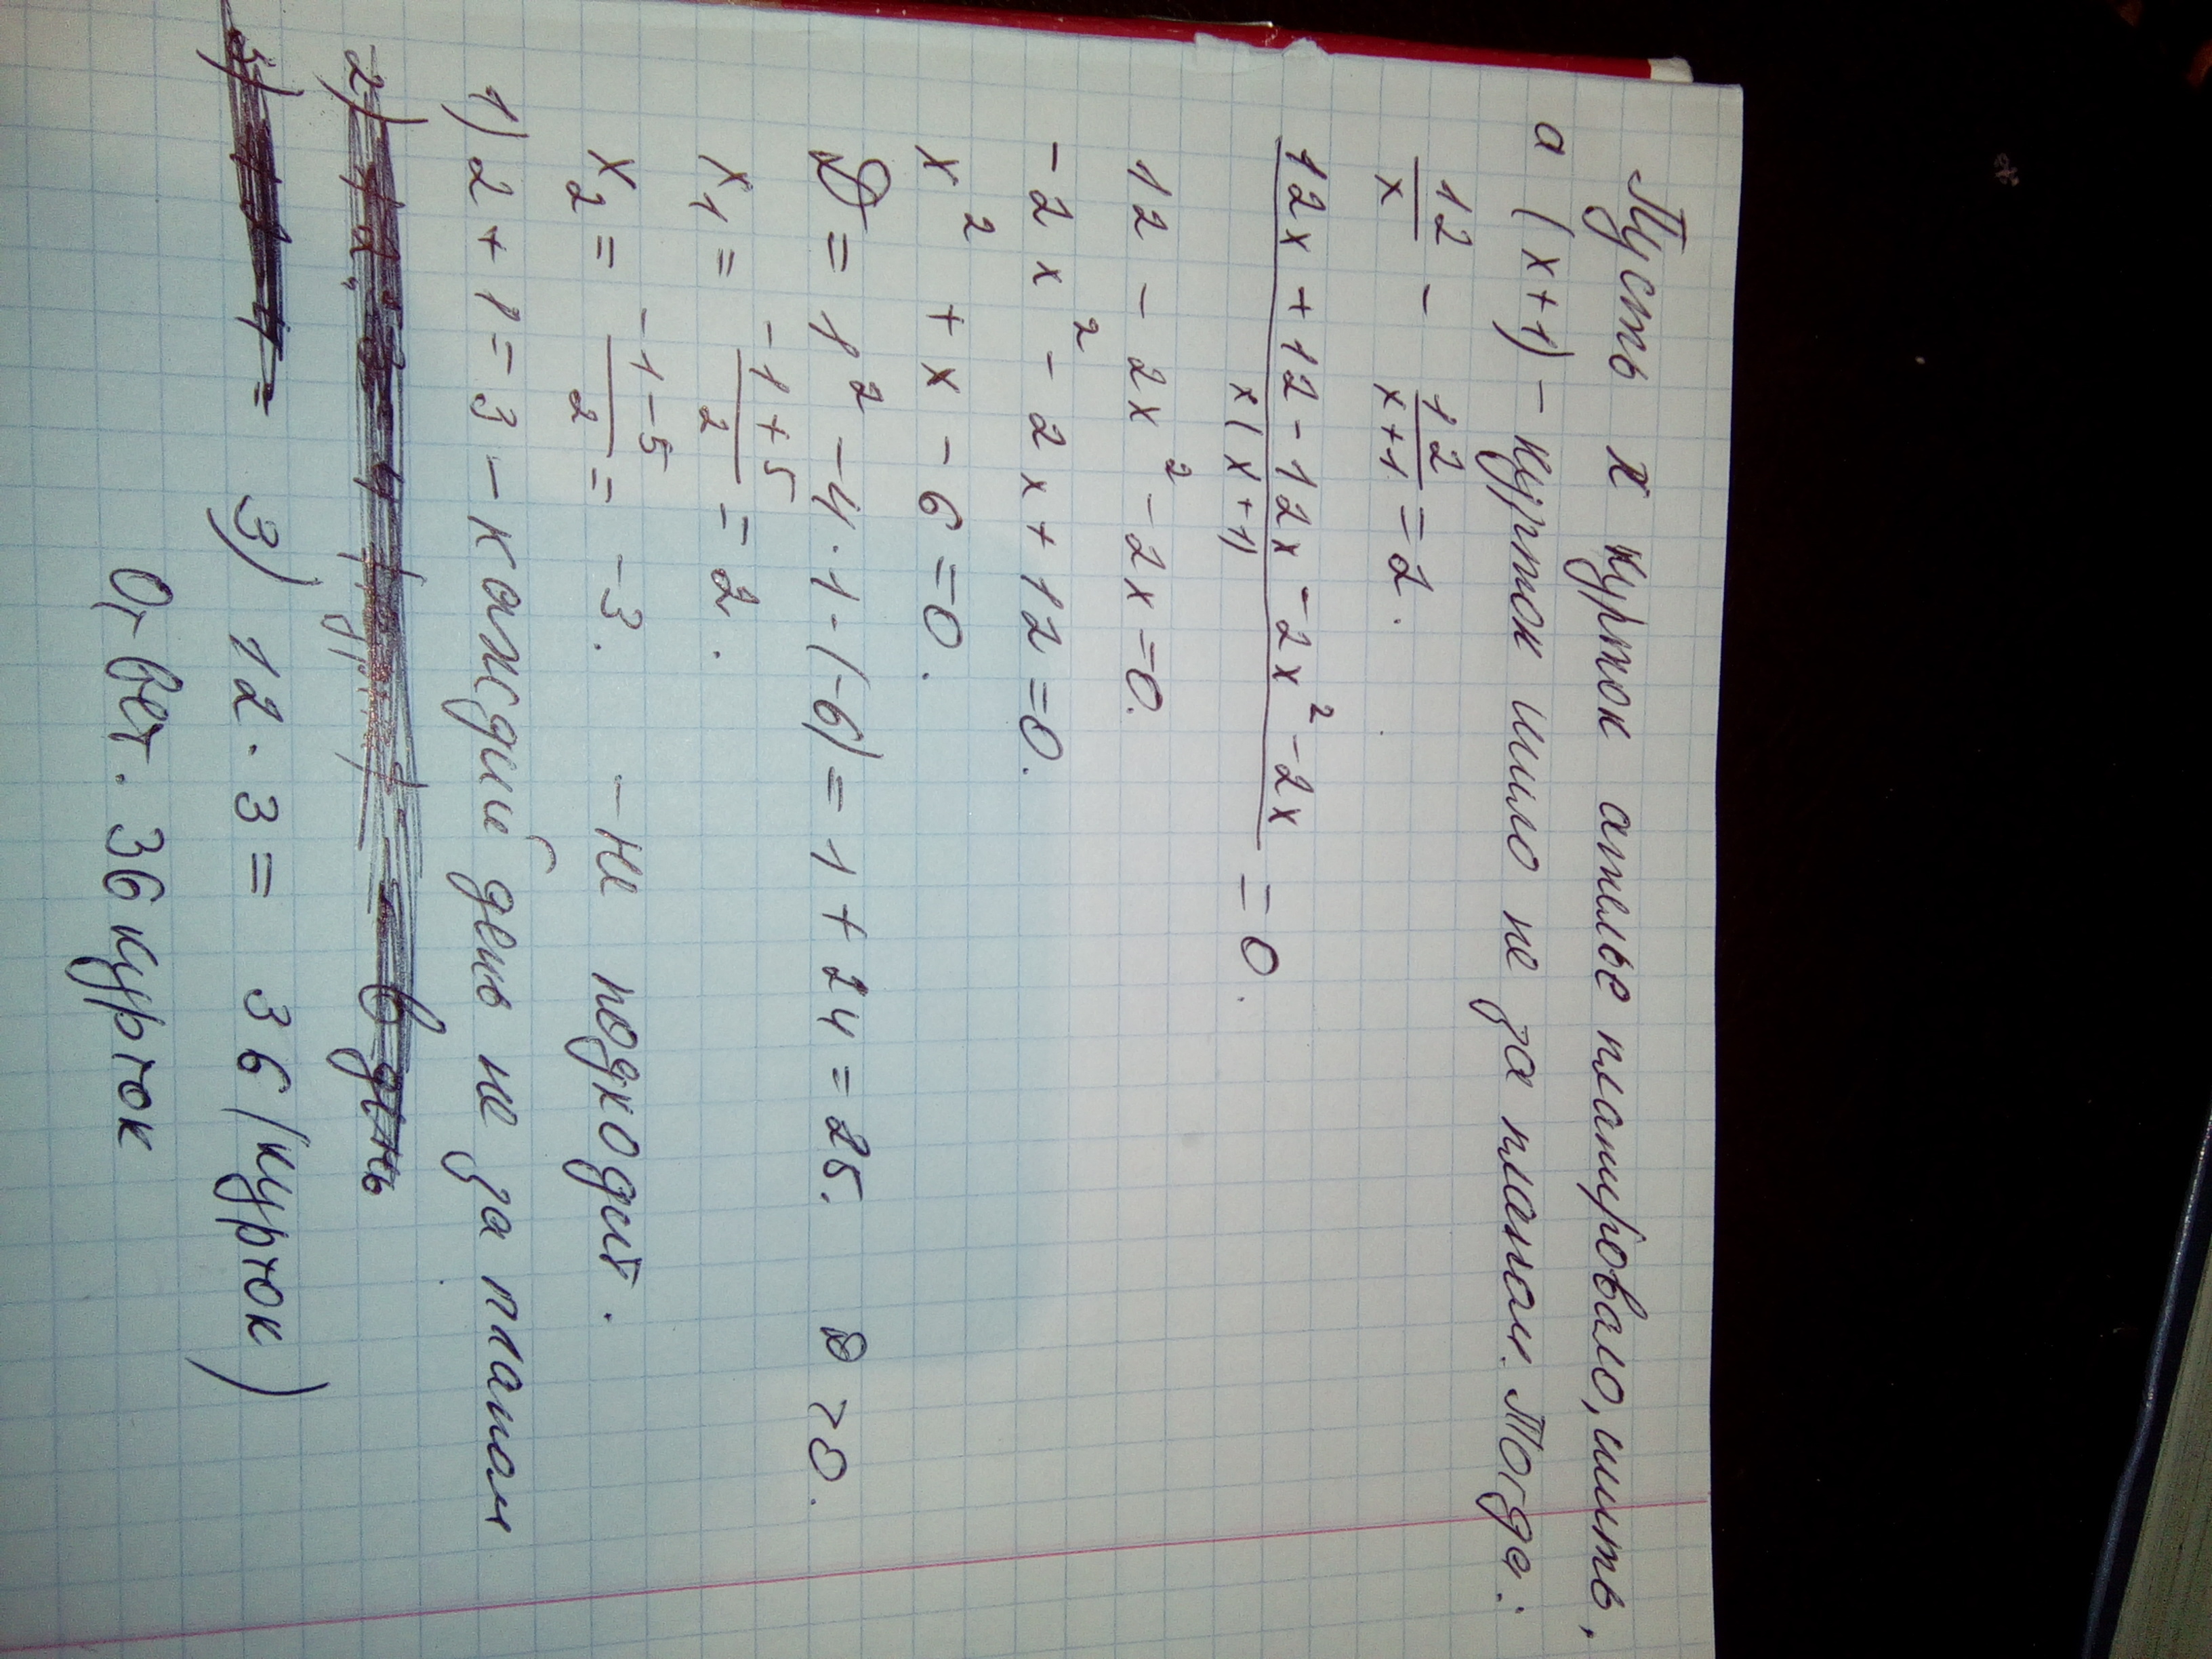 Пусть х курток ателье планировало, шить,
а (х+1) – курток шило не за планом. Тогда:
12/x - 12/x+1 = 2.
12x + 12 - 12x - 2x² - 2x / x(x+1) = 0.
12 - 2x² - 2x = 0.
-2x² - 2x + 12 = 0.
x² + x - 6 = 0.
D = 1² - 4·1·(-6) = 1 + 24 = 25. D > 0.
x₁ = -1+5/2 = 2.
x₂ = -1-5/2 = -3. – не подходит.
1) 2 + 1 = 3 – каждый день не за планом
2)
3) = 3) 12 · 3 = 36 (курток)
Ответ. 36 курток